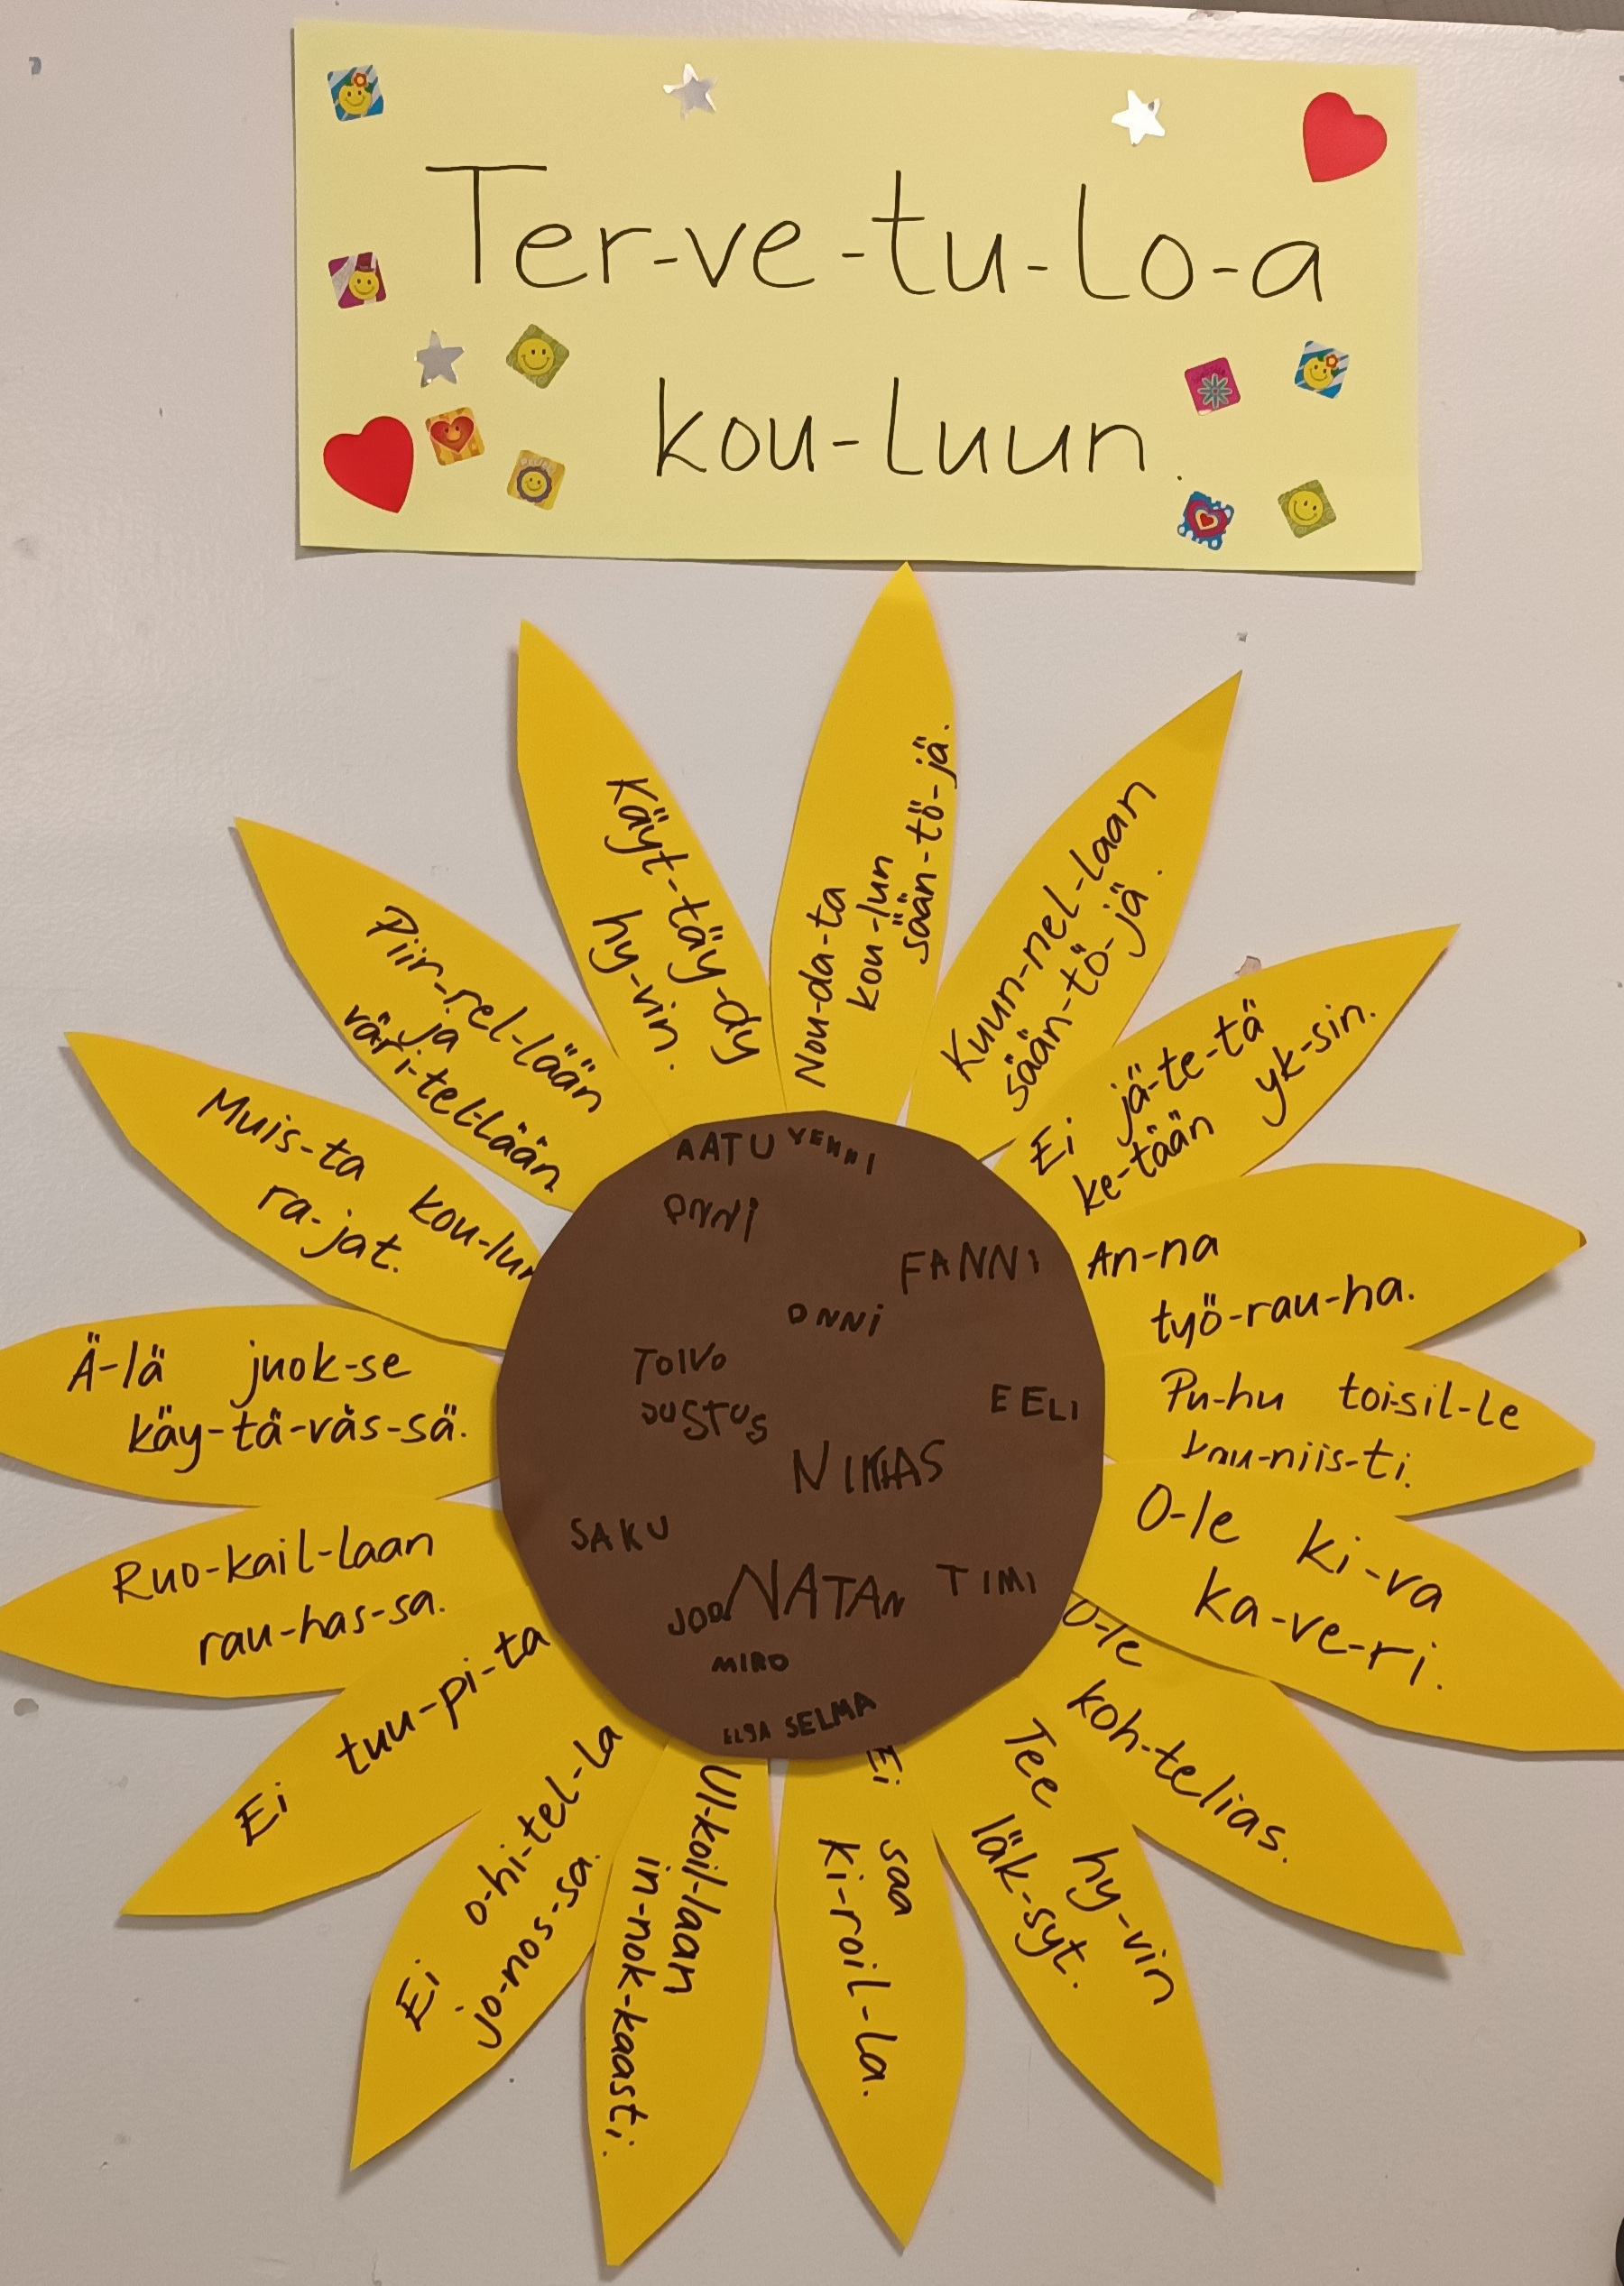 Ter-ve-tu-lo-a
kou-luun.
Nou-da-ta
kou-lun
sään-tö-jä.
Kuun-nel-laan
sään-tö-jä.
Ei jä-te-tä
ke-tään yk-sin.
An-na
työ-rau-ha.
Pu-hu toi-sil-le
kau-niis-ti.
O-le ki-va
ka-ve-ri.
O-le
koh-telias.
Tee hy-vin
läk-syt.
Ei saa
ki-roil-la.
Ul-koil-laan
in-nok-kaasti.
Ei o-hi-tel-la
jo-nos-sa.
Ei tuu-pi-ta
Ruo-kail-laan
rau-has-sa.
Ä-lä juok-se
käy-tä-väs-sä.
Muis-ta kou-lun
ra-jat.
Piir-rel-lään
ja
väri-tel-lään
Käyt-täy-dy
hy-vin.
AATU
ONNI
FANNI
ONNI
TOIVO
JUSTUS
EELI
NIKLAS
SAKU
NATAN
TIMI
MIRO
ELSA SELMA